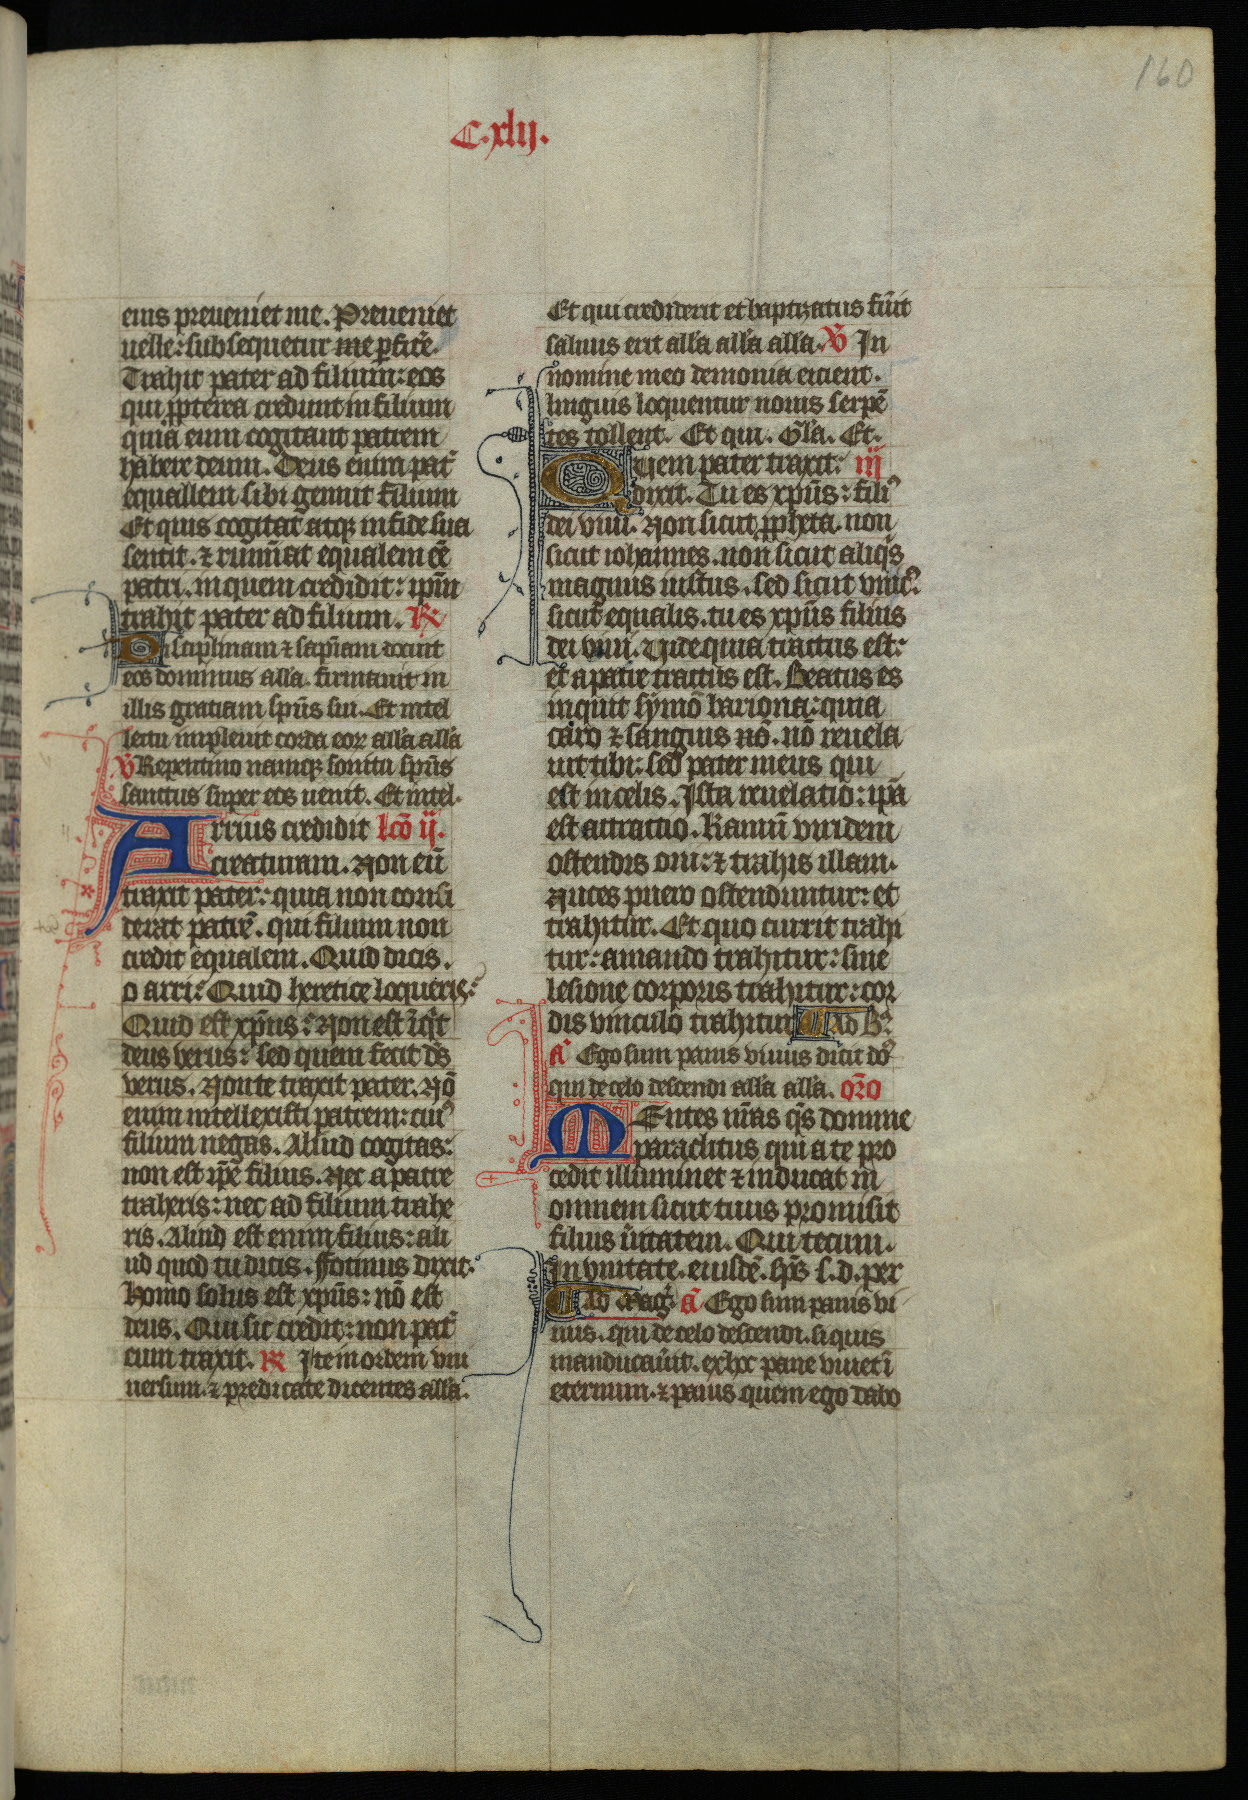 160
C.xlij.
eius preueniet me. Preueniet
uelle: subsequetur me perficere.
Trahit pater ad filium: eos
qui propterea credunt in filium
quia eum cogitant patrem
habere deum. Deus enim pat̄
equallem sibi genuit filium
Et quis cogitat atqꝫ in fide sua
sentit. ⁊ ruminat equalem eē
patri. in quem credidit: ip̄m
trahit pater ad filium. R̷
Disciplinam ⁊ sap̄iam docuit
eos dominus all̄a. firmauit in
illis gratiam sp̄us sui. Et intel
lectu impleuit corda eoꝝ all̄a all̄a
V̷ Repentino namqꝫ sonitu sp̄us
sanctus super eos uenit. Et intel.
Arrius credidit lcō ij.
creaturam. Non eū
traxit pater: quia non consi
derat patrē. qui filium non
credit equalem. Quid dicis.
o arri: Quid heretice loqueris:
Quid est xp̄us: Non est īq̄t
deus verus: sed quem fecit dūs
verus. Non te traxit pater. Nō
enim intellexisti patrem: cuiꝰ
filium negas. Aliud cogitas:
non est ip̄e filius. Nec a patre
traheris: nec ad filium trahe
ris. Aliud est enim filius: ali
ud quod tu dicis. Fotinus dixit.
homo solus est xp̄us: nō est
deus. Qui sic credit: non pat̄
eum traxit. R̷ Ite in orbem vni
uersum. ⁊ predicate dicentes all̄a.
Et qui crediderit et baptizatus fuīt
saluus erit all̄a all̄a all̄a. V̷ In
nomine meo demonia eicient.
linguis loquentur nouis serpē
tes tollent. Et qui. Gl̄a. Et.
Quem pater traxit: iij
dixit. Tu es xp̄us: filiꝰ
dei viui. Non sicut ꝓpheta. non
sicut iohannes. non sicut aliq̄s
magnus iustus. sed sicut vnicꝰ.
sicut equalis. tu es xp̄us filius
dei viui. Vide quia tractus est:
et a patre tractus est. Beatus es
inquit symō bariona: quia
caro ⁊ sanguis nō. nō reuela
uit tibi: sed pater meus qui
est in celis. Ista reuelatio: ip̄a
est attractio. Ramū viridem
ostendis oui: ⁊ trahis illam.
Nuces puero ostenduntur: et
trahitur. Et quo currit trahi
tur: amando trahitur: sine
lesione corporis trahitur: cor
dis vinculo trahitur. Ad B̄.
A̅ Ego sum panis viuus dicit dō
qui de celo descendi all̄a all̄a. or̄o
Mentes nr̄as q̄s domine
paraclitus qui a te pro
cedit illuminet ⁊ inducat in
omnem sicut tuus promisit
filius ūitatem. Qui tecum.
In vnitate. eiusdē. sp̄s s. d. per
Ad Maḡ. A̅ Ego sum panis vi
uus. qui de celo descendi. si quis
manducaūit. ex hoc pane viuet ī
eternum. ⁊ panis quem ego dabo